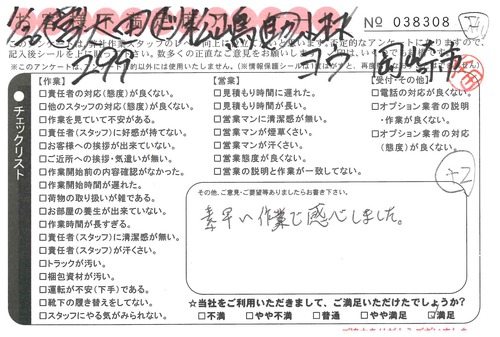 No 038308
チェックリスト
【作業】
□責任者の対応(態度)が良くない。
□他のスタッフの対応(態度)が良くない。
□作業を見ていて不安がある。
□責任者(スタッフ)に好感が持てない。
□お客様への挨拶が出来ていない。
□ご近所への挨拶・気遣いが無い。
□作業開始前の内容確認がなかった。
□作業開始時間が遅れた。
□荷物の取り扱いが雑である。
□お部屋の養生が出来ていない。
□作業時間が長すぎる。
□責任者(スタッフ)に清潔感が無い。
□責任者(スタッフ)が汗くさい。
□トラックが汚い。
□梱包資材が汚い。
□運転が不安(下手)である。
□靴下の履き替えをしてない。
□スタッフにやる気がみられない。
【営業】
□見積もり時間に遅れた。
□見積もり時間が長い。
□営業マンに清潔感が無い。
□営業マンが煙草くさい。
□営業マンが汗くさい。
□営業態度が良くない。
□営業の説明と作業が一致してない。
【受付・その他】
□電話の対応が良くない。
□オプション業者の説明
・作業が良くない。
□オプション業者の対応
(態度)が良くない。
その他、ご意見・ご要望等ありましたらお書き下さい。
素早い作業で感心しました。
☆当社をご利用いただきまして、ご満足いただけたでしょうか?
□不満 □やや不満 □普通 □やや満足 ☑満足